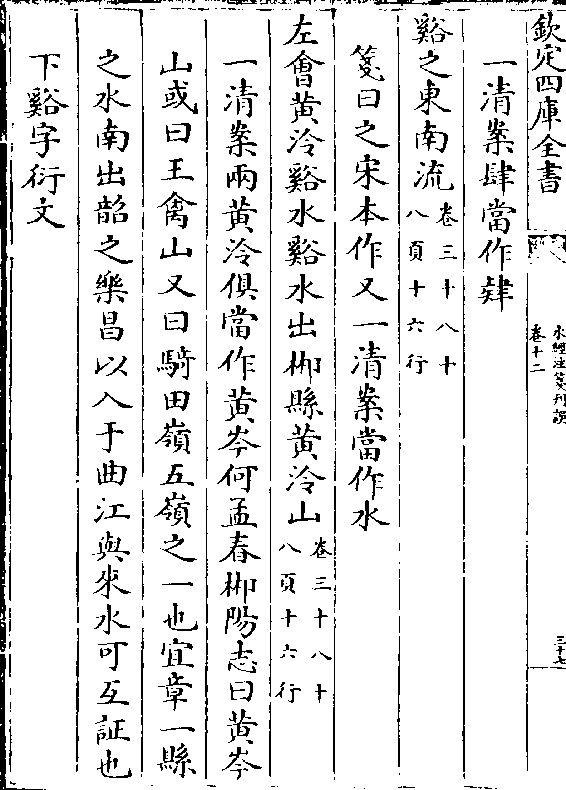 欽定四庫全書
水經注箋刊誤
卷十二
三十七
一清案肆當作肄
谿之東南流卷三十八十
八頁十六行
箋曰之宋本作又一清案當作水
左會黃泠谿水谿水出郴縣黃泠山卷三十八十
八頁十六行
一清案兩黃泠俱當作黃岑何孟春郴陽志曰黃岑
山或曰王禽山又曰騎田嶺五嶺之一也宜章一縣
之水南出韶之樂昌以入于曲江與來水可互証也
下谿字衍文